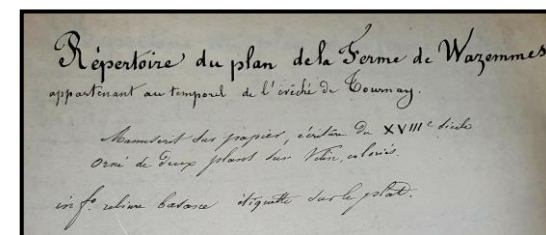 Répertoire du plan de la Ferme de Wazemmes
appartenant au temporel de l'évêché de Tournay.
Manuscrit sur papier, écriture du XVIIIe siècle
Orné de deux plans sur Vélin, coloriés.
in fo. reliure basane étiquette sur le plat.